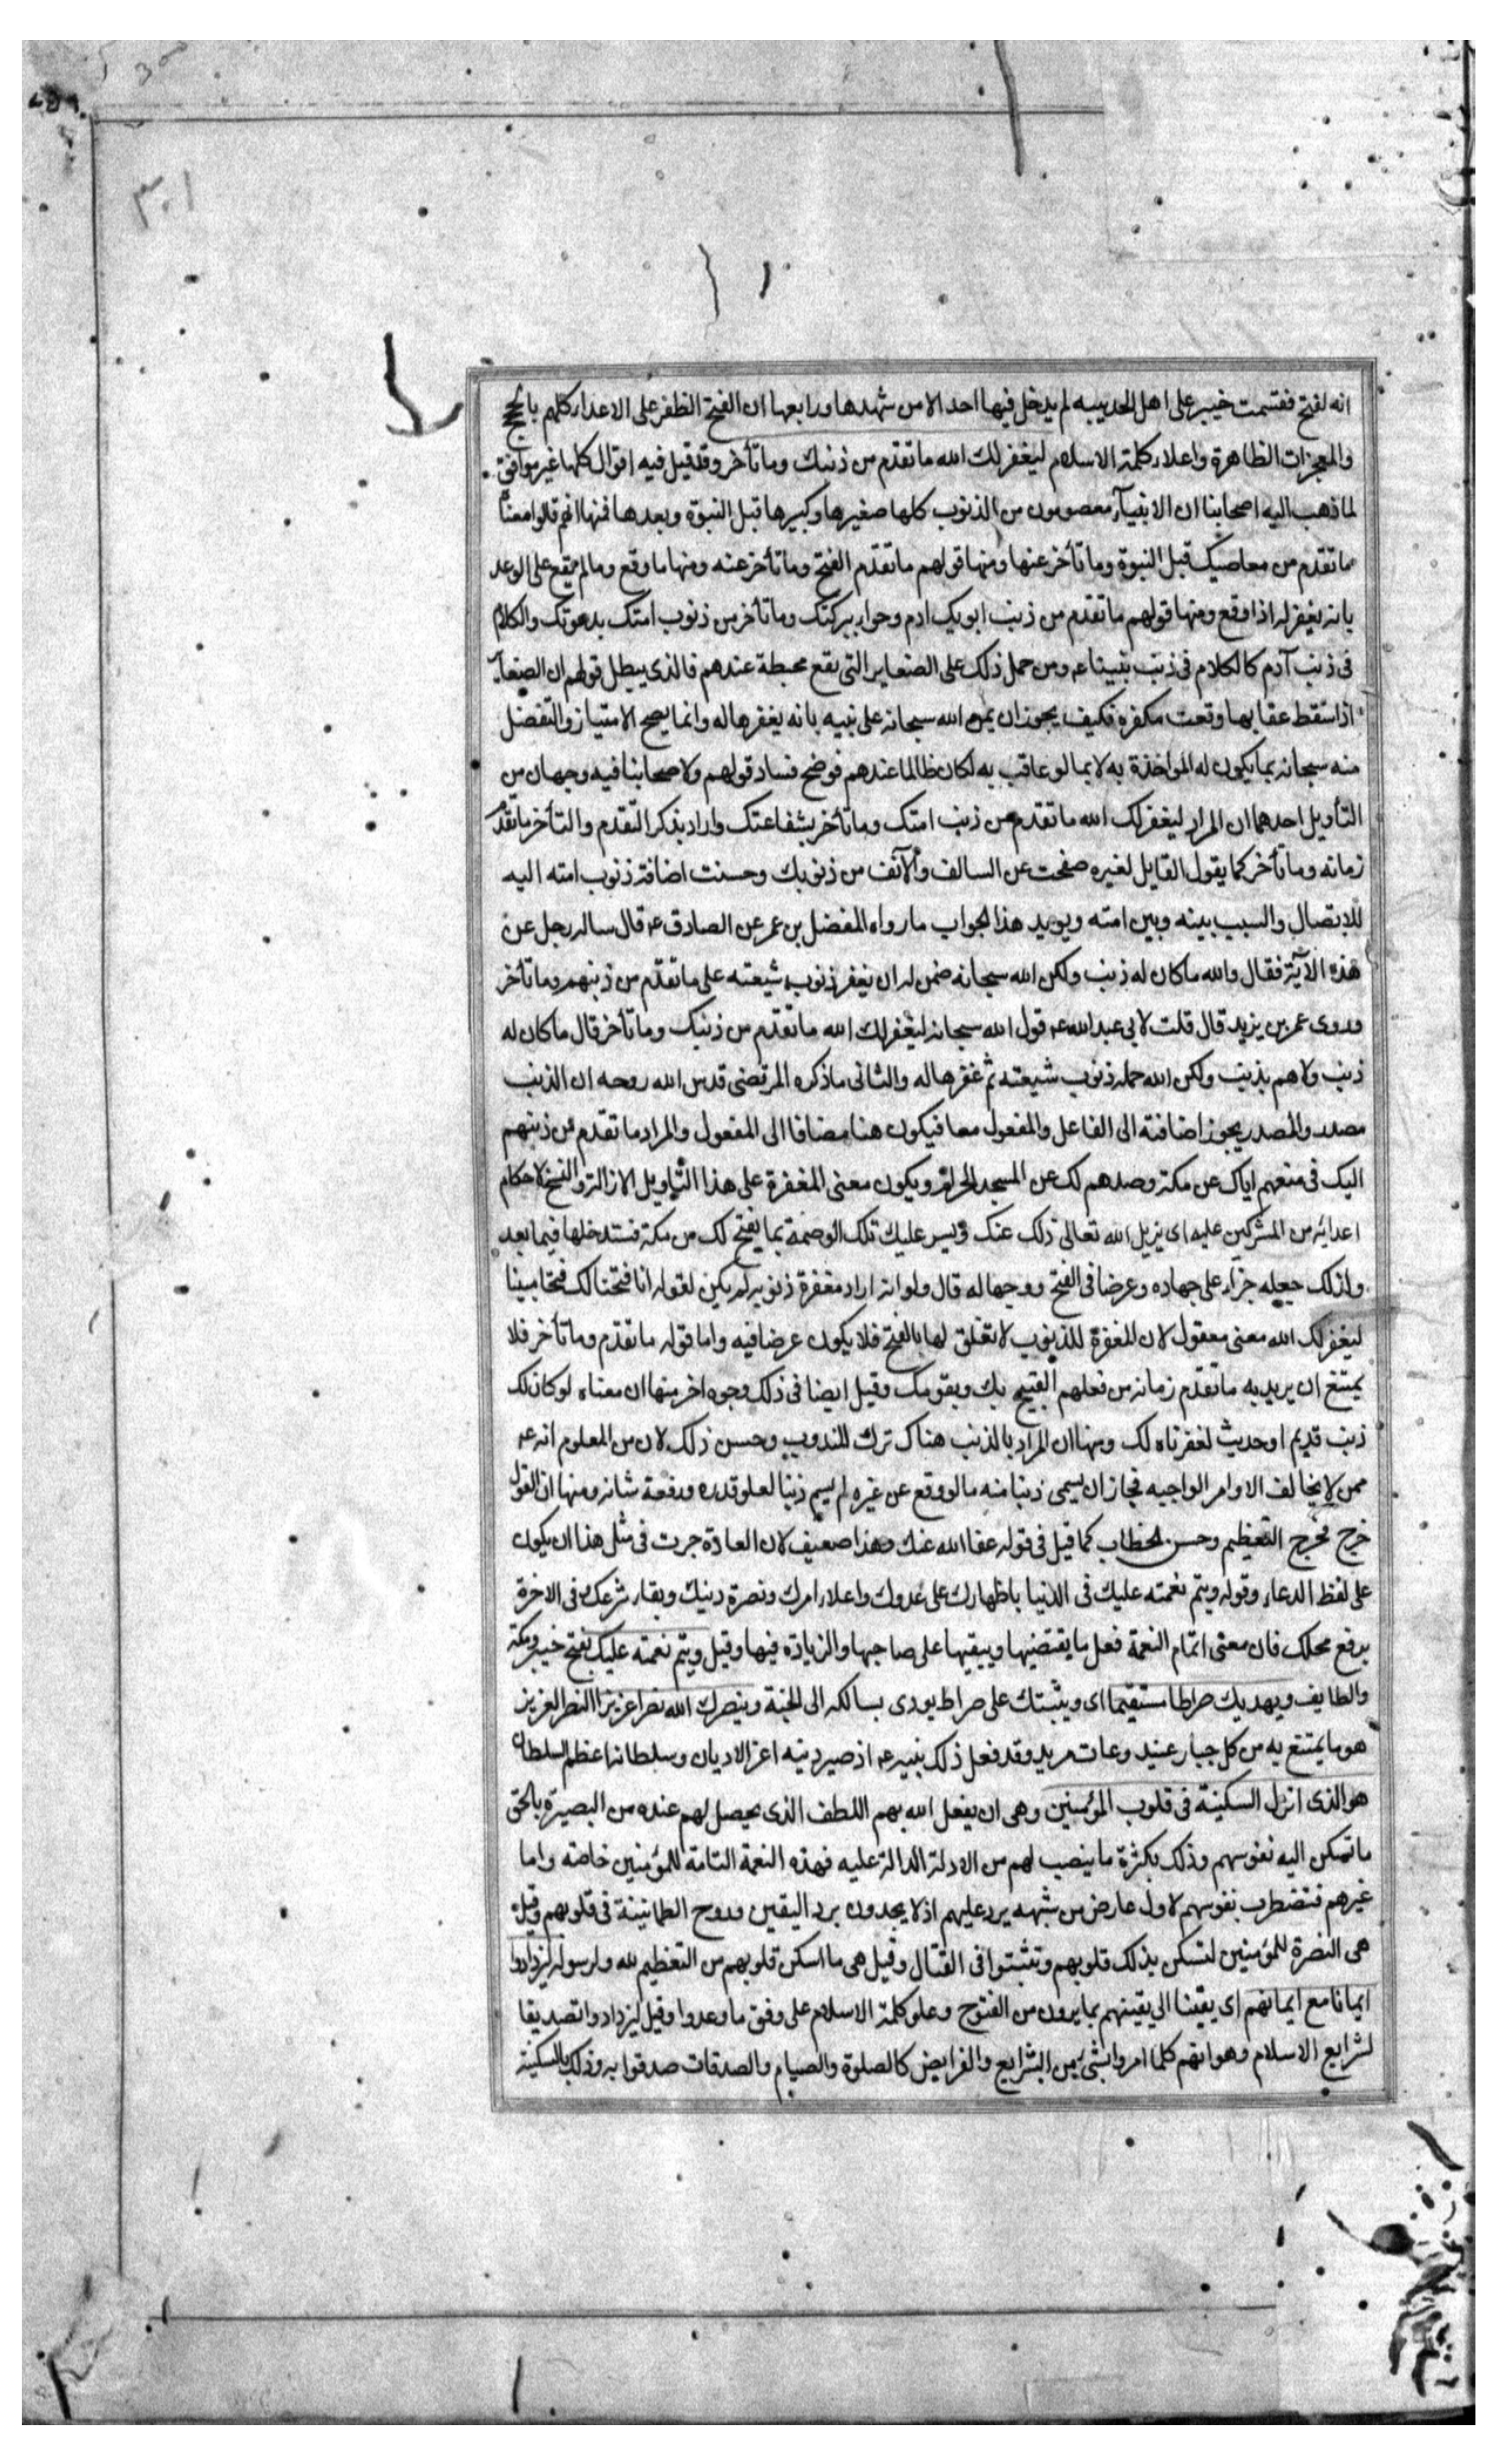 انه لفتح فقسمت خيبر على اهل الحديبيه لم يدخل فيها احد الا من شهدها ورابعها ان الفتح الظفر على الاعداء كلهم بالحجج
والمعجزات الظاهرة واعلاء كلمة الاسلام ليغفر لك الله ما تقدم من ذنبك وما تأخر وقد قيل فيه اقوال كلها غير موافق
لما ذهب اليه اصحابنا ان الانبيآء معصومون من الذنوب كلها صغيرها وكبيرها قبل النبوة وبعدها فمنها انهم قالوا معناه
ما تقدم من معاصيك قبل النبوة وما تأخر عنها ومنها قولهم ما تقدم الفتح وما تأخر عنه ومنها ما وقع وما لم يقع على الوعد
بانه يغفر له اذا وقع ومنها قولهم ما تقدم من ذنب ابويك ادم وحواء ببركتك وما تأخر من ذنوب امتك بدعوتك والكلام
فى ذنب آدم كالكلام فى ذنب نبينا ع ومن حمل ذلك على الصغاير التى يقع محبطة عندهم فالذى يبطل قولهم ان الصغاير
اذا سقط عقابها وقعت مكفره فكيف يجوز ان يمن الله سبحانه على نبيه بانه يغفرها له وانما يصح الامتنان والتفضل
منه سبحانه بما يكون له المواخذة به لا بما لو عاقب به لكان ظالما عندهم فوضح فساد قولهم ولاصحابنا فيه وجهان من
التأويل احدهما ان المراد ليغفر لك الله ما تقدم من ذنب امتك وما تأخر بشفاعتك واراد بذكر التقدم والتأخر ما تقدم
زمانه وما تأخر كما يقول القايل لغيره صفحت عن السالف والآنف من ذنوبك وحسنت اضافة ذنوب امته اليه
للاتصال والسبب بينه وبين امته ويويد هذا الجواب ما رواه المفضل بن عمر عن الصادق ع قال ساله رجل عن
هذه الآية فقال والله ما كان له ذنب ولكن الله سبحانه ضمن له ان يغفر ذنوب شيعته على ما تقدم من ذنبهم وما تأخر
وروى عمر بن يزيد قال قلت لابى عبد الله ع قول الله سبحانه ليغفر لك الله ما تقدم من ذنبك وما تأخر قال ما كان له
ذنب ولا هم بذنب ولكن الله حمله ذنوب شيعته ثم غفرها له والثانى ما ذكره المرتضى قدس الله روحه ان الذنب
مصدر والمصدر يجوز اضافته الى الفاعل والمفعول معا فيكون هنا مضافا الى المفعول والمراد ما تقدم من ذنبهم
اليك فى منعهم اياك عن مكة وصدهم لك عن المسجد الحرام ويكون معنى المغفرة على هذا التاويل الازالة والنسخ لاحكام
اعدائه من المشركين عليه اى يزيل الله تعالى ذلك عنك ويستر عليك تلك الوصمة بما يفتح لك من مكة فستدخلها فيما بعد
ولذلك جعله جزاء على جهاده وغرضا فى الفتح ووجها له قال ولو انه اراد مغفرة ذنوبه لم يكن لقوله انا فتحنا لك فتحا مبينا
ليغفر لك الله معنى معقول لان المغفرة للذنوب لا تعلق لها بالفتح فلا يكون غرضا فيه واما قوله ما تقدم وما تأخر فلا
يمتنع ان يريد به ما تقدم زمانه من فعلهم القبيح بك وبقومك وقيل ايضا فى ذلك وجوه اخر منها ان معناه لو كان لك
ذنب قديم او حديث لغفرناه لك ومنها ان المراد بالذنب هناك ترك المندوب وحسن ذلك لان من المعلوم انه ع
ممن لا يخالف الاوامر الواجبه فجاز ان يسمى ذنبا منه ما لو وقع عن غيره لم يسم ذنبا لعلو قدره ورفعة شانه ومنها ان القول
خرج مخرج التعظيم وحسن الخطاب كما قيل فى قوله عفا الله عنك وهذا ضعيف لان العادة جرت فى مثل هذا ان يكون
على لفظ الدعاء وقوله ويتم نعمته عليك فى الدنيا باظهارك على عدوك واعلاء امرك ونصرة دينك وبقاء شرعك فى الاخرة
برفع محلك فان معنى اتمام النعمة فعل ما يقتضيها ويبقيها على صاحبها والزيادة فيها وقيل ويتم نعمته عليك بفتح خيبر ومكة
والطايف ويهديك صراطا مستقيما اى ويثبتك على صراط يودى بسالكه الى الجنة وينصرك الله نصرا عزيزا النصر العزيز
هو ما يمتنع به من كل جبار عنيد وعات مريد وقد فعل ذلك بنبيه ع اذ صير دينه اعز الاديان وسلطانه اعظم السلطان
هو الذى انزل السكينة فى قلوب المؤمنين وهى ان يفعل الله بهم اللطف الذى يحصل لهم عنده من البصيرة بالحق
ما تسكن اليه نفوسهم وذلك بكثرة ما ينصب لهم من الادلة الدالة عليه فهذه النعمة التامة للمؤمنين خاصة واما
غيرهم فتضطرب نفوسهم لاول عارض من شبهه يرد عليهم اذ لا يجدون برد اليقين وروح الطمانينة فى قلوبهم وقيل
هى النصرة للمؤمنين لتسكن بذلك قلوبهم وتثبتوا فى القتال وقيل هى ما اسكن قلوبهم من التعظيم لله ولرسوله ليزدادوا
ايمانا مع ايمانهم اى يقينا الى يقينهم بما يرون من الفتوح وعلو كلمة الاسلام على وفق ما وعدوا وقيل ليزدادوا تصديقا
لشرايع الاسلام وهو انهم كلما امروا بشىء من الشرايع والفرايض كالصلوة والصيام والصدقات صدقوا به وذلك بالسكينة